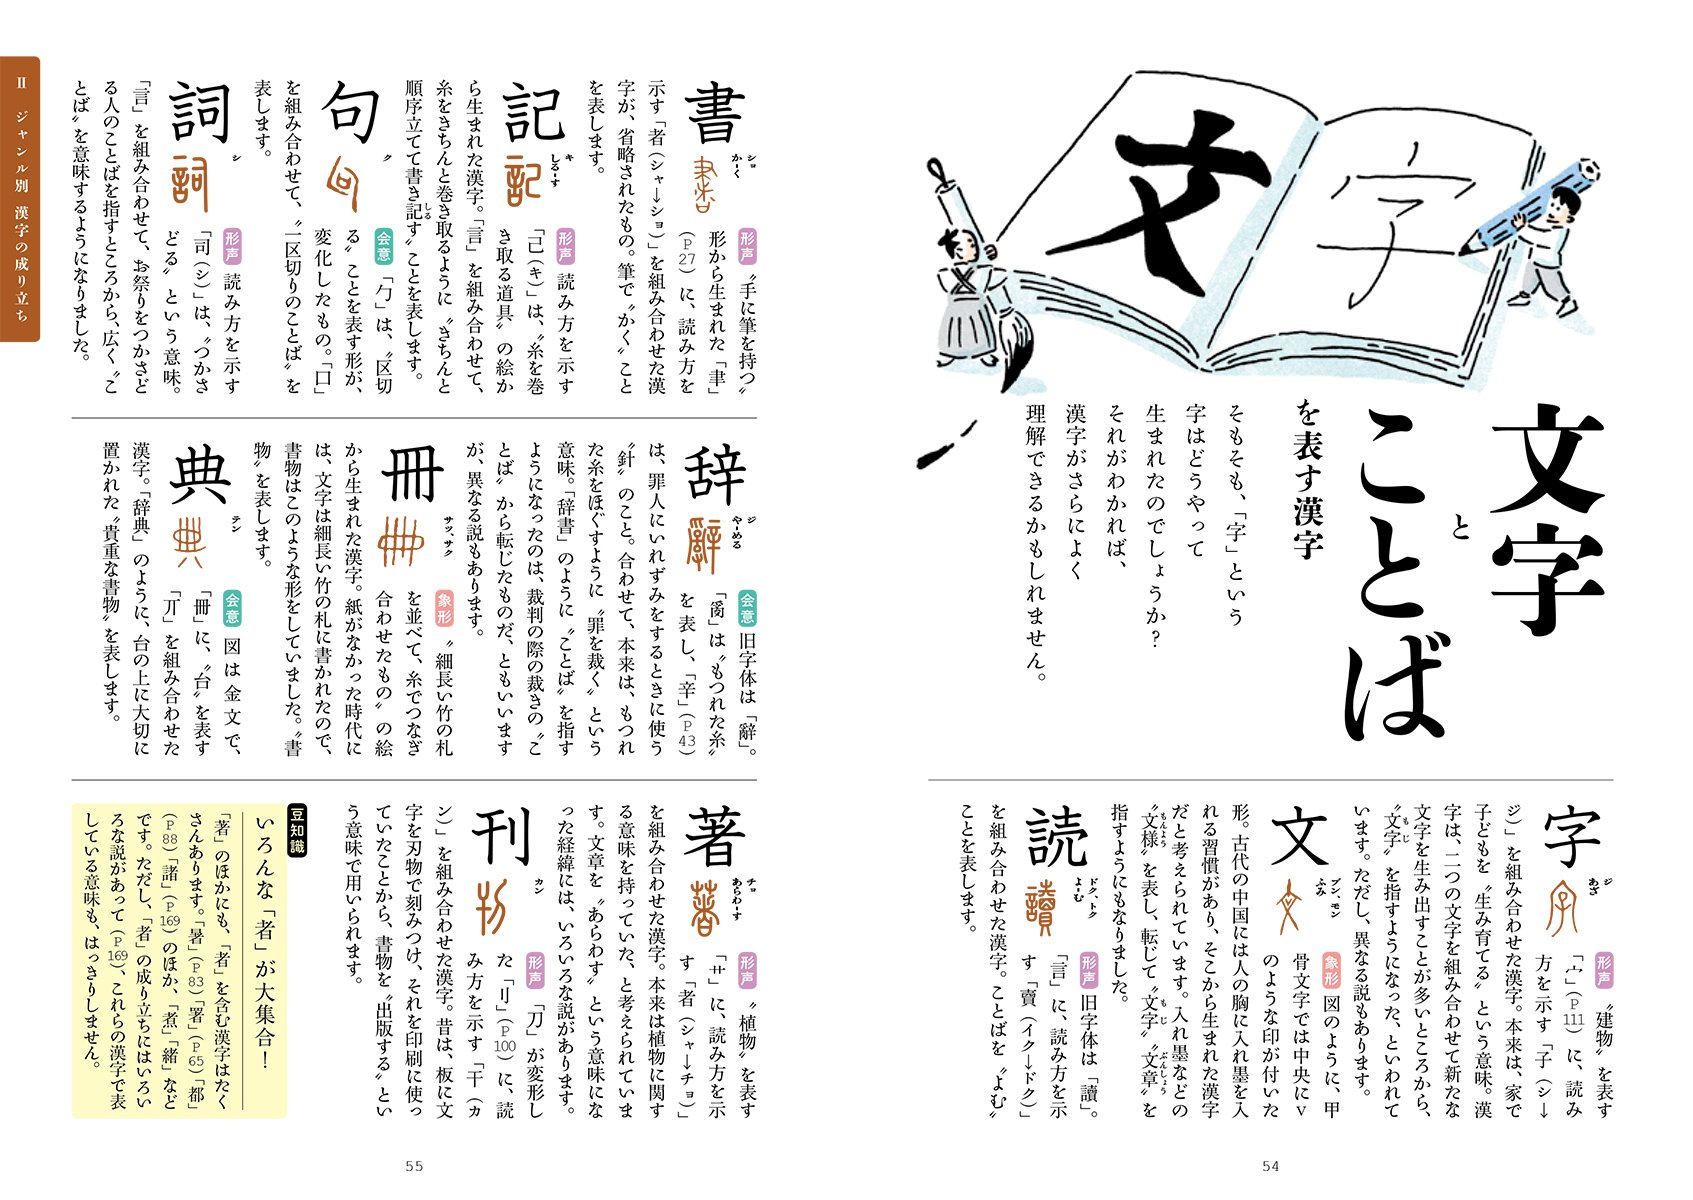 文字
と
ことば
を表す漢字
そもそも、「字」という
字はどうやって
生まれたのでしょうか?
それがわかれば、
漢字がさらによく
理解できるかもしれません。
文
字
字
ジ
あざ
形声 〝建物〟を表す
「宀」(P111)に、読み
方を示す「子(シ→
ジ)」を組み合わせた漢字。本来は、家で
子どもを〝生み育てる〟という意味。漢
字は、二つの文字を組み合わせて新たな
文字を生み出すことが多いところから、
〝文字〟を指すようになった、といわれて
もじ
います。ただし、異なる説もあります。
文
ブン、モン
ふみ
象形 図のように、甲
骨文字では中央にV
のような印が付いた
形。古代の中国には人の胸に入れ墨を入
れる習慣があり、そこから生まれた漢字
だと考えられています。入れ墨などの
〝文様〟を表し、転じて〝文字〟〝文章〟を
もんよう
もじ
ぶんしょう
指すようにもなりました。
読
ドク、トク
よむ
形声 旧字体は「讀」。
「言」に、読み方を示
す「賣(イク→ドク)」
を組み合わせた漢字。ことばを〝よむ〟
ことを表します。
54
書
ショ
か−く
形声 〝手に筆を持つ〟
形から生まれた「聿」
(P27)に、読み方を
示す「者(シャ→ショ)」を組み合わせた漢
字が、省略されたもの。筆で〝かく〟こと
を表します。
記
キ
しる−す
形声 読み方を示す
「己(キ)」は、〝糸を巻
き取る道具〟の絵か
ら生まれた漢字。「言」を組み合わせて、
糸をきちんと巻き取るように〝きちんと
順序立てて書き記す〟ことを表します。
しる
句
ク
会意 「勹」は、〝区切
る〟ことを表す形が、
変化したもの。「口」
を組み合わせて、〝一区切りのことば〟を
表します。
詞
シ
形声 読み方を示す
「司(シ)」は、〝つかさ
どる〟という意味。
「言」を組み合わせて、お祭りをつかさど
る人のことばを指すところから、広く〝こ
とば〟を意味するようになりました。
辞
ジ
や−める
会意 旧字体は「辭」。
「𤔔」は〝もつれた糸〟
を表し、「辛」(P43)
は、罪人にいれずみをするときに使う
〝針〟のこと。合わせて、本来は、もつれ
た糸をほぐすように〝罪を裁く〟という
意味。「辞書」のように〝ことば〟を指す
ようになったのは、裁判の際の裁きの〝こ
とば〟から転じたものだ、ともいいます
が、異なる説もあります。
冊
サツ、サク
象形 〝細長い竹の札
を並べて、糸でつなぎ
合わせたもの〟の絵
から生まれた漢字。紙がなかった時代に
は、文字は細長い竹の札に書かれたので、
書物はこのような形をしていました。〝書
物〟を表します。
典
テン
会意 図は金文で、
「冊」に、〝台〟を表す
「丌」を組み合わせた
漢字。「辞典」のように、台の上に大切に
置かれた〝貴重な書物〟を表します。
著
チョ
あらわ−す
形声 〝植物〟を表す
「艹」に、読み方を示
す「者(シャ→チョ)」
を組み合わせた漢字。本来は植物に関す
る意味を持っていた、と考えられていま
す。文章を〝あらわす〟という意味にな
った経緯には、いろいろな説があります。
刊
カン
形声 「刀」が変形し
た「刂」(P100)に、読
み方を示す「干(カ
ン)」を組み合わせた漢字。昔は、板に文
字を刃物で刻みつけ、それを印刷に使っ
ていたことから、書物を〝出版する〟とい
う意味で用いられます。
豆知識
いろんな「者」が大集合!
「著」のほかにも、「者」を含む漢字はたく
さんあります。「暑」(P83)「署」(P65)「都」
(P88)「諸」(P169)のほか、「煮」「緒」など
です。ただし、「者」の成り立ちにはいろい
ろな説があって(P169)、これらの漢字で表
している意味も、はっきりしません。
55
Ⅱ ジャンル別 漢字の成り立ち